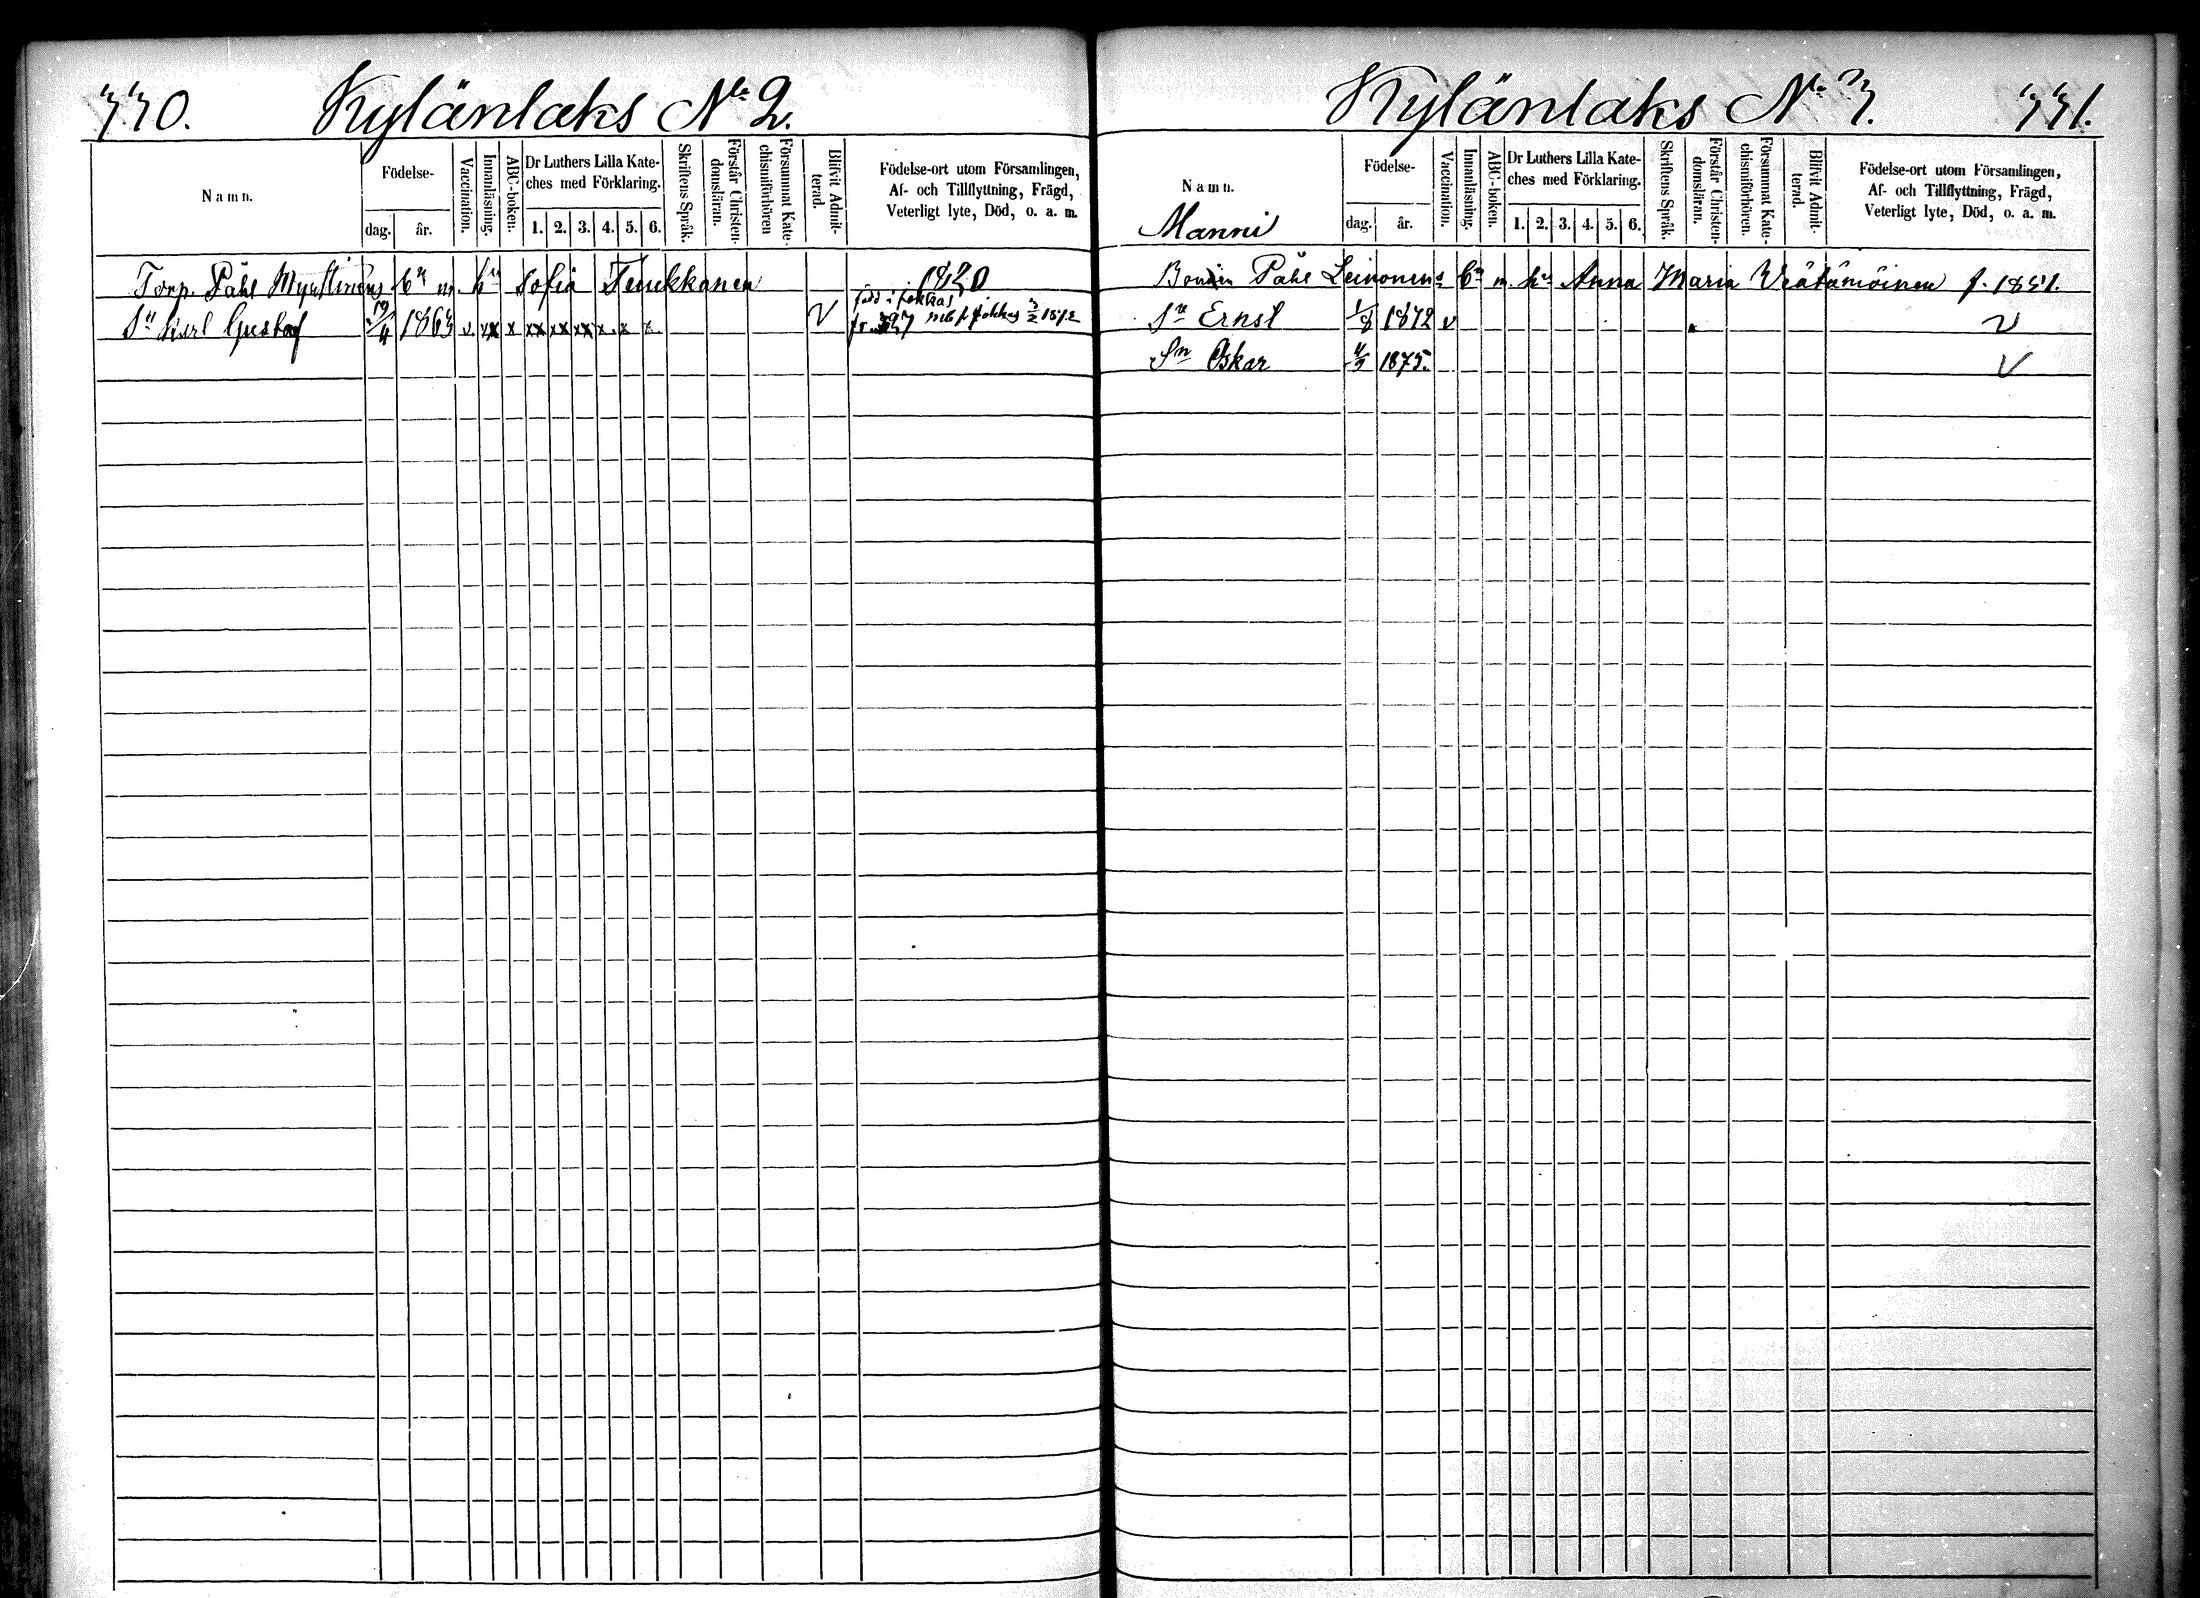 330. Kylänlaks No 2.
Namn.
Födelse-
dag. år.
Vaccination.
Innanläsning.
ABC-boken.
Dr Luthers Lilla Kate-
ches med Förklaring.
1. 2. 3. 4. 5. 6.
Skriftens Språk.
Förstår Christen-
domsläran.
Försummat Kate-
chismiförhören
Blifvit Admit-
terad.
Födelse-ort utom Församlingen,
Af- och Tillflyttning, Frägd,
Veterligt lyte, Död, o. a. m.
Torp. Påhl bn m hu Sofia Tenukkanen 1820
Sn Karl Gustaf 19/4 1863 v xx x xx xx xx x x x V född i Jokkas
Kylänlaks No 3. 331.
Namn.
Manni
Födelse-
dag. år.
Vaccination.
Innanläsning.
ABC-boken.
Dr Luthers Lilla Kate-
ches med Förklaring.
1. 2. 3. 4. 5. 6.
Skriftens Språk.
Förstår Christen-
domsläran.
Försummat Kate-
chismiförhören.
Blifvit Admit-
terad.
Födelse-ort utom Församlingen,
Af- och Tillflyttning, Frägd,
Veterligt lyte, Död, o. a. m.
Påhl Leinonens bn m. hu Anna Maria Väätämöinen f. 1851.
Sn Ernst 1/8 1872 v V
Sn Oskar 4/9 1875. V